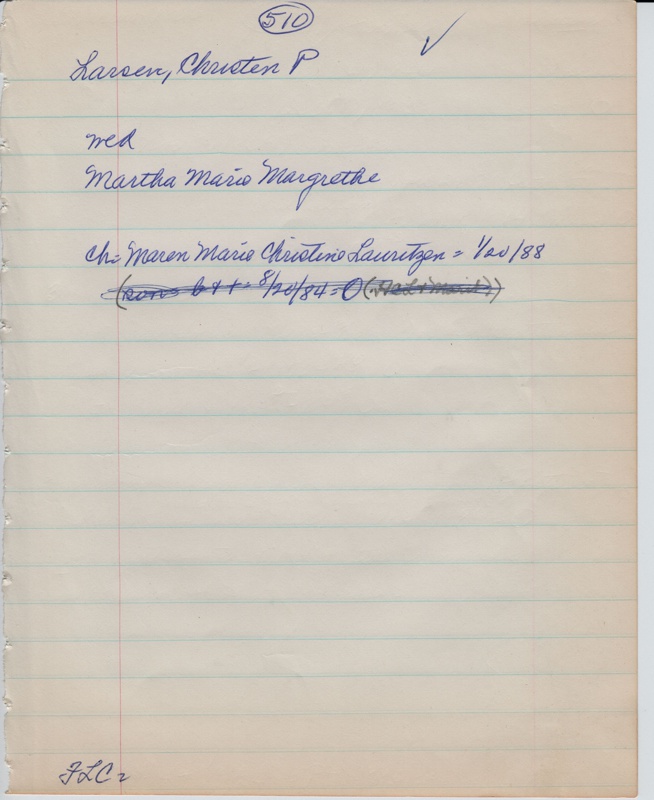 510
Larsen, Christen P ✓
wed
Martha Marie Margrethe
ch= Maren Marie Christine Lauritzen = 1/20/88
(son= b + t = 8/20/84 = O (
FLC =